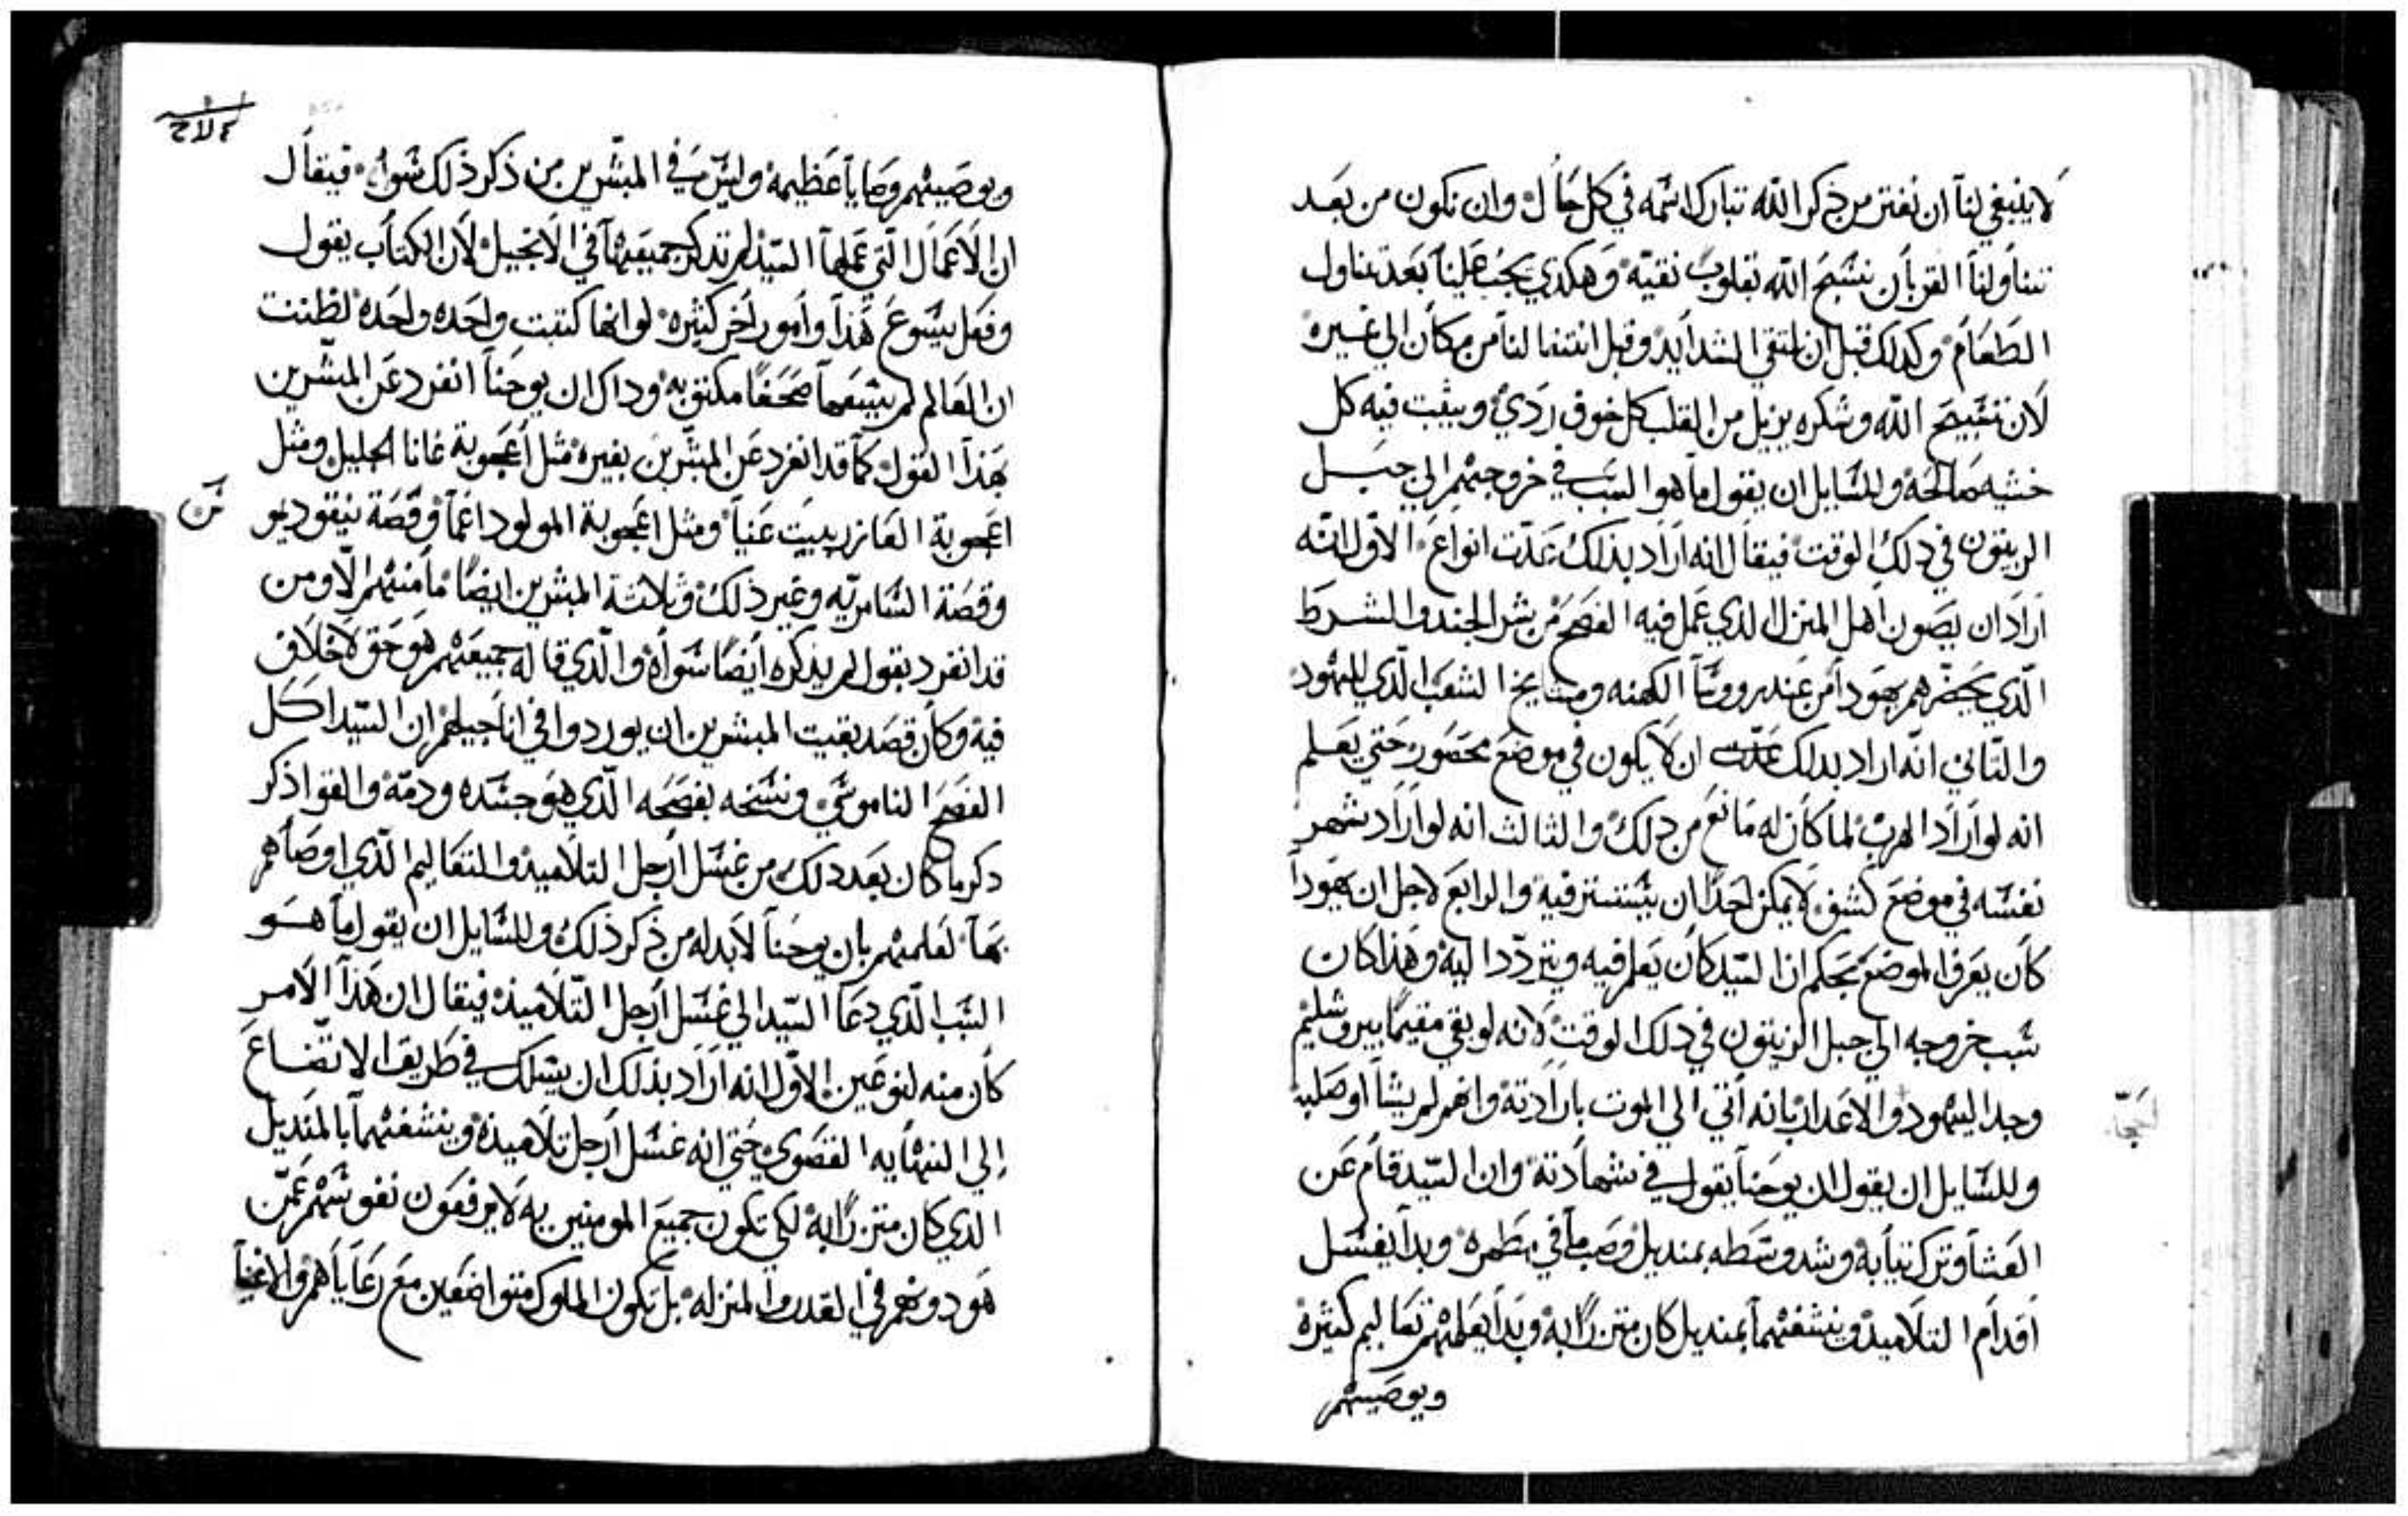 لاينبغي لنا ان نفتر من ذكر الله تبارك اسمه في كل حال وان نكون من بعد
تناولنا القربان نسبح الله بقلوب نقيه وهكدي يجب علينا بعد تناول
الطعام وكدلك قبل ان نلتقي الشدايد وقبل انتقالنا من مكان الي غيره
لان تسبيح الله وشكره يزيل من القلب كل خوف ردي ويثبت فيه كل
خشيه صالحه وللسايل ان يقول ما هوا السبب في خروجهم الي جبل
الزيتون في دلك الوقت فيقال انه اراد بذلك عدت انواع الاول انه
اراد ان يصون اهل المنزل الدي عمل فيه الفصح من شر الجند والشرط
الذي يحضرهم يهودا من عند روسا الكهنه ومشايخ الشعب الذي لليهود
والتاني انه اراد بدلك ان لا يكون في موضع محصور حتي يعلم
انه لو اراد الهرب لما كان له مانع من دلك والثالث انه لو اراد شهر
نفسه في موضع كشف لا يمكن احدا ان يستتر فيه والرابع لاجل ان يهودا
كان يعرف الموضع بحكم ان السيد كان يعلم فيه ويتردد اليه وهذا كان
سبب خروجه الي جبل الزيتون في دلك الوقت لانه لو بقي مقيما بيروشليم
وجد اليهود والاعدا بانه اتي الي الموت بارادته وانهم لم يشا او صلبه
وللسايل ان يقول ان يوحنا يقول في شهادته وان السيد قام عن
العشا وترك تيابه وشد وسطه بمنديل وصب ما في مطهره وبدا يغسل
اقدام التلاميد وينشفهما بمنديل كان متزرا به وبدا يعلمهم تعاليم كثيره
ويوصيهم
ويوصيهم وصايا عظيمه وليس في المبشرين من ذكر ذلك سواه فيقال
ان الاعمال التي عملها السيد لم تدكر جميعها في الانجيل لان الكتاب يقول
وفعل يسوع هذا وامور اخر كثيره لو انها كتبت واحده واحده لظننت
ان العالم لم يسعها صحفا مكتوبه وداك ان يوحنا انفرد عن المبشرين
بهذا القول كما قد انفرد عن المبشرين بغيره مثل اعجوبة غانا الجليل ومثل
اعجوبة العازر ببيت عنيا ومثل اعجوبة المولود اعما وقصة نيقوديمو
وقصة السامريه وغير ذلك وثلاثة المبشرين ايضا ما منهم الا ومن
قد انفرد بقول لم يذكره ايضا سواه والذي قاله جميعهم هو حق لا خلاف
فيه وكان قصد بقيت المبشرين ان يوردوا في اناجيلهم ان السيد اكل
الفصح الناموسي ونسخه بفصحه الذي هو جسده ودمه والقوا ذكر
دكر ما كان بعد دلك من غسل ارجل التلاميد والتعاليم الذي اوصاهم
بها لعلمهم بان يوحنا لابد له من ذكر ذلك وللسايل ان يقول ما هو
السبب الذي دعا السيد الي غسل ارجل التلاميذ فيقال ان هذا الامر
كان منه لنوعين الاول انه اراد بذلك ان يسلك في طريق الاتضاع
الي النهايه القصوي حتي انه غسل ارجل تلاميذه وينشفهما بالمنديل
الدي كان متزرا به لكي تكون جميع المومنين به لا يرفعون نفوسهم عمن
هو دونهم في القدر والمنزله بل تكون الملوك متواضعين مع رعاياهم والاغنيا